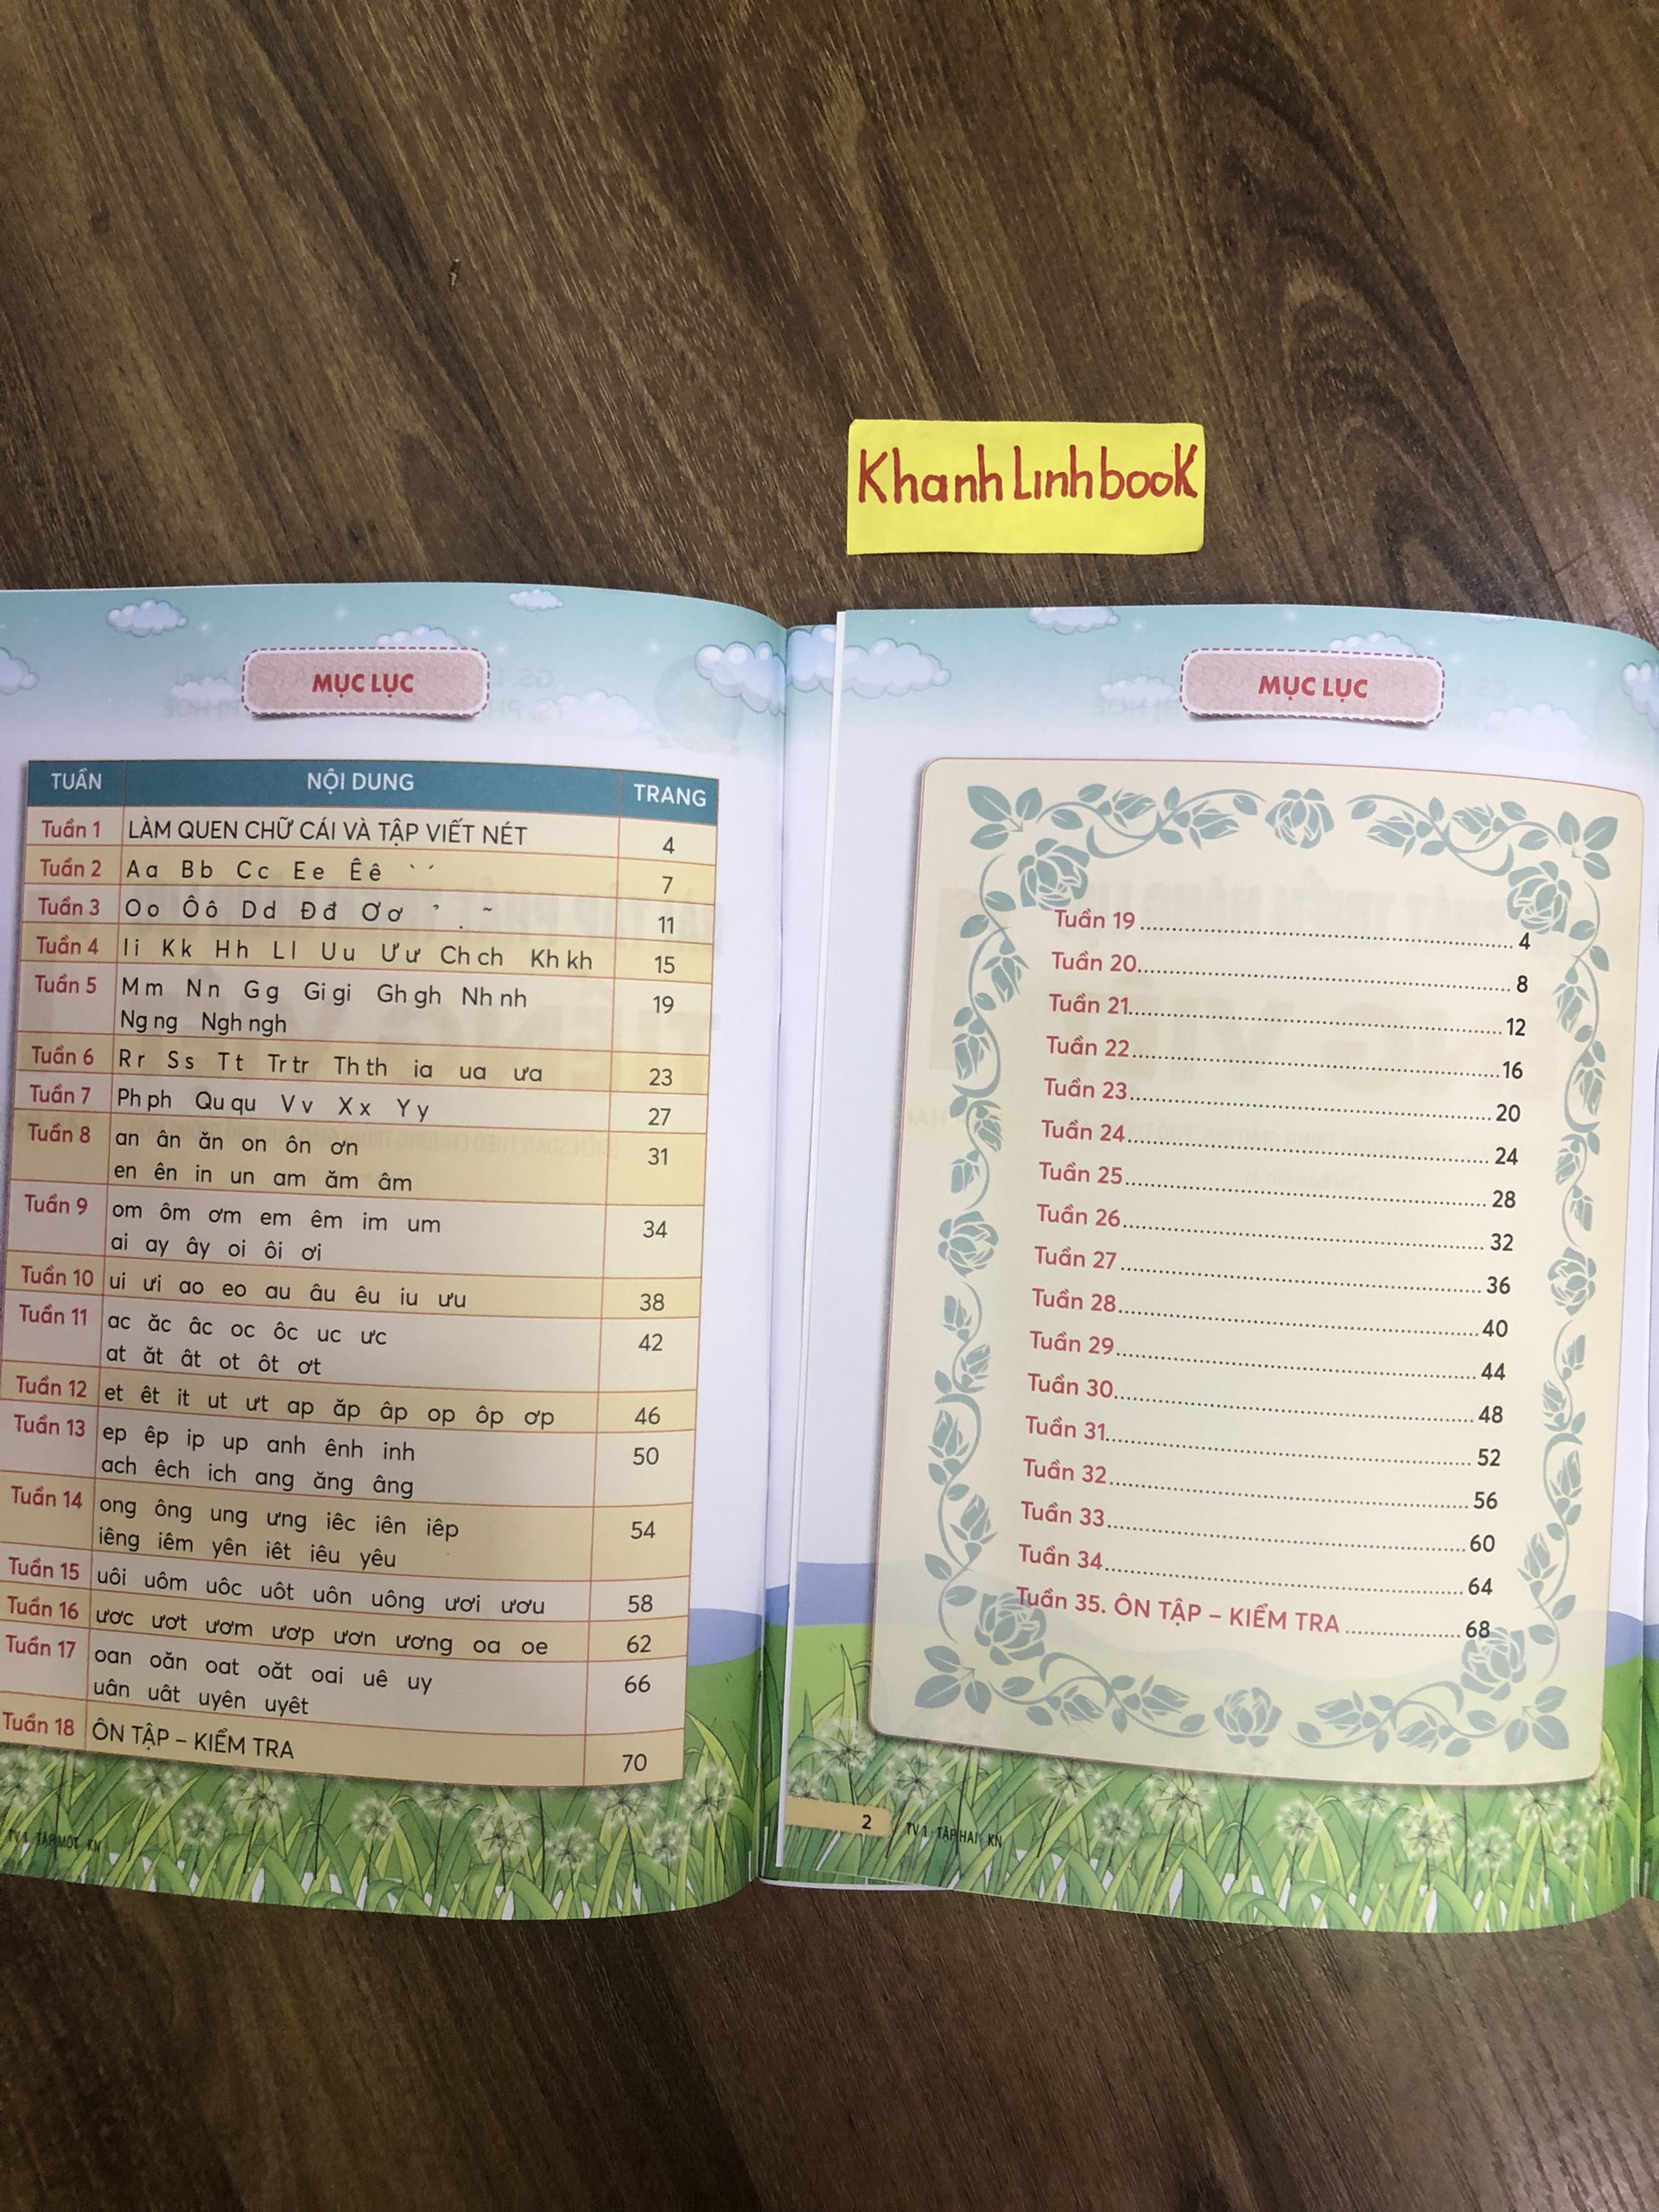 KhanhLinhbook
MỤC LỤC
TUẦN NỘI DUNG TRANG
Tuần 1 LÀM QUEN CHỮ CÁI VÀ TẬP VIẾT NÉT 4
Tuần 2 A a B b C c E e Ê ê ` ´ 7
Tuần 3 O o Ô ô D d Đ đ Ơ ơ ̉ . ~ 11
Tuần 4 I i K k H h L l U u Ư ư Ch ch Kh kh 15
Tuần 5 M m N n G g Gi gi Gh gh Nh nh 19
Ng ng Ngh ngh
Tuần 6 R r S s T t Tr tr Th th ia ua ưa 23
Tuần 7 Ph ph Qu qu V v X x Y y 27
Tuần 8 an ân ăn on ôn ơn 31
en ên in un am ăm âm
Tuần 9 om ôm ơm em êm im um 34
ai ay ây oi ôi ơi
Tuần 10 ui ưi ao eo au âu êu iu ưu 38
Tuần 11 ac ăc âc oc ôc uc ưc 42
at ăt ât ot ôt ơt
Tuần 12 et êt it ut ưt ap ăp âp op ôp ơp 46
Tuần 13 ep êp ip up anh ênh inh 50
ach êch ich ang ăng âng
Tuần 14 ong ông ung ưng iêc iên iêp 54
iêng iêm yên iêt iêu yêu
Tuần 15 uôi uôm uôc uôt uôn uông ươi ươu 58
Tuần 16 ươc ươt ươm ươp ươn ương oa oe 62
Tuần 17 oan oăn oat oăt oai uê uy 66
uân uât uyên uyêt
Tuần 18 ÔN TẬP – KIỂM TRA 70
TV 1 TẬP MỘT KN
MỤC LỤC
Tuần 19 4
Tuần 20 8
Tuần 21 12
Tuần 22 16
Tuần 23 20
Tuần 24 24
Tuần 25 28
Tuần 26 32
Tuần 27 36
Tuần 28 40
Tuần 29 44
Tuần 30 48
Tuần 31 52
Tuần 32 56
Tuần 33 60
Tuần 34 64
Tuần 35. ÔN TẬP – KIỂM TRA 68
2 TV 1 TẬP HAI KN